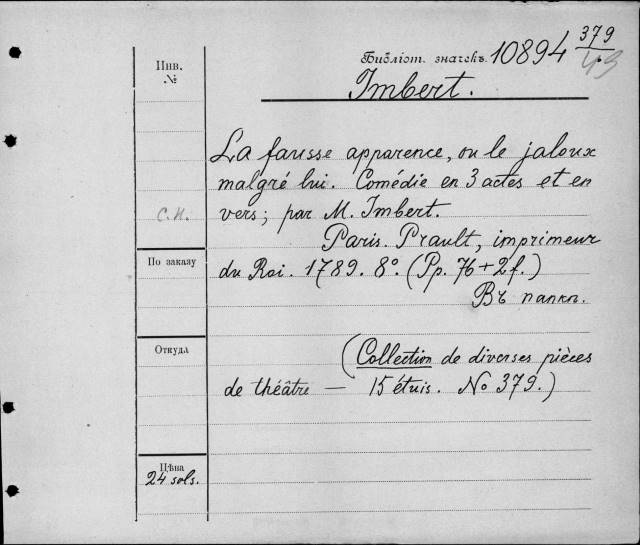 Инв. №
Библіот. значекъ. 10894 379/43
Imbert.
La fausse apparence, ou le jaloux
malgré lui. Comédie en 3 actes et en
С.П. vers; par M. Imbert.
Paris. Prault, imprimeur
По заказу du Roi. 1789. 8°. (Pp. 76+2f.)
Въ папкѣ.
Откуда (Collection de diverses pièces
de théâtre — 15 étuis. No 379.)
Цѣна
24 sols.